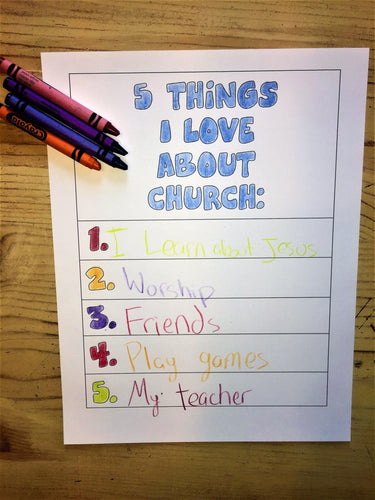 5 THiNGS
I LOVE
ABOUT
CHURCH:
1. I Learn about Jesus
2. Worship
3. Friends
4. Play games
5. My teacher
Crayola